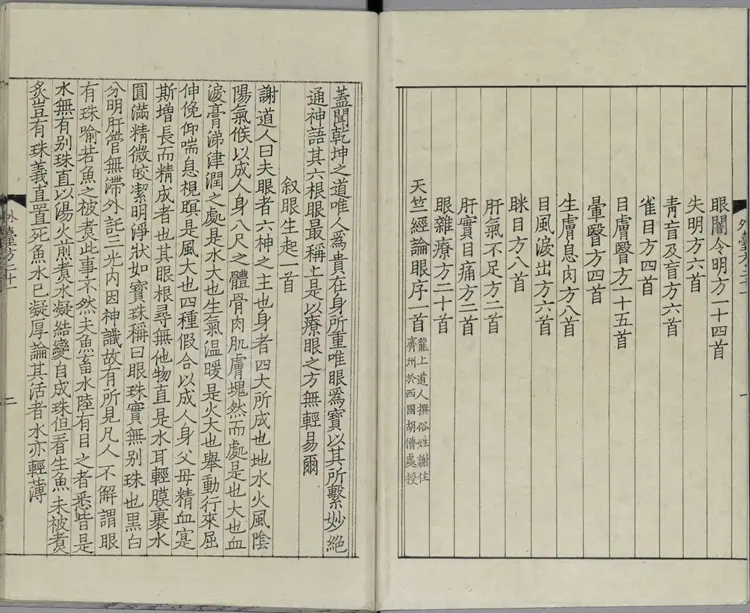 眼闇令明方一十四首
失明方六首
青盲及盲方六首
雀目方四首
目膚瞖方一十五首
暈瞖方四首
生膚息肉方八首
目風淚出方六首
眯目方八首
肝氣不足方二首
肝實目痛方二首
眼雜療方二十首
天竺經論眼序一首
隴上道人撰俗姓謝住
齊州於西國胡僧處授
蓋聞乾坤之道唯人爲貴在身所重唯眼爲寶以其所繫妙絕
通神語其六根眼最稱上是以療眼之方無輕易爾
敘眼生起一首
謝道人曰夫眼者六神之主也身者四大所成也地水火風陰
陽氣候以成人身八尺之體骨肉肌膚塊然而處是也大也血
淚膏涕津潤之處是水大也生氣温暖是火大也舉動行來屈
伸俛仰喘息視瞑是風大也四種假合以成人身父母精血寔
斯增長而精成者也其眼根尋無他物直是水耳輕膜裹水
圓滿精微皎潔明淨狀如寶珠稱曰眼珠實無別珠也黑白
分明肝管無滯外託三光内因神識故有所見凡人不解謂眼
有珠喻若魚之被煮此事不然夫魚畜水陸有目之者悉皆是
水無有別珠直以湯火煎煮水凝結變自成珠但看生魚未被煮
炙豈有珠義直置死魚水已凝厚論其活者水亦輕薄
外臺方二十一
二